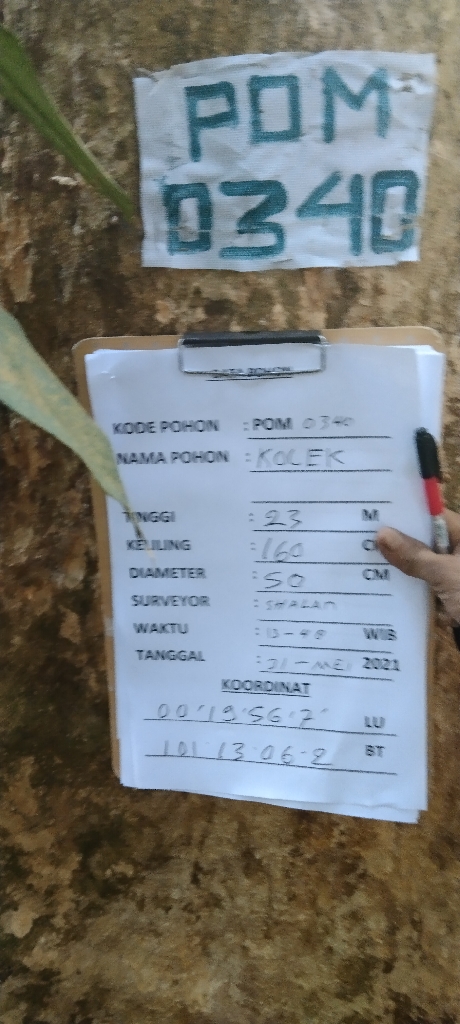 POM
0340
DATA POHON
KODE POHON : POM 0340
NAMA POHON : KOLEK
TINGGI : 23 M
KELILING : 160 CM
DIAMETER : 50 CM
SURVEYOR :
WAKTU : 13-48 WIB
TANGGAL : 31-MEI 2021
KOORDINAT
00°19'56.7" LU
101 13 06.2 BT